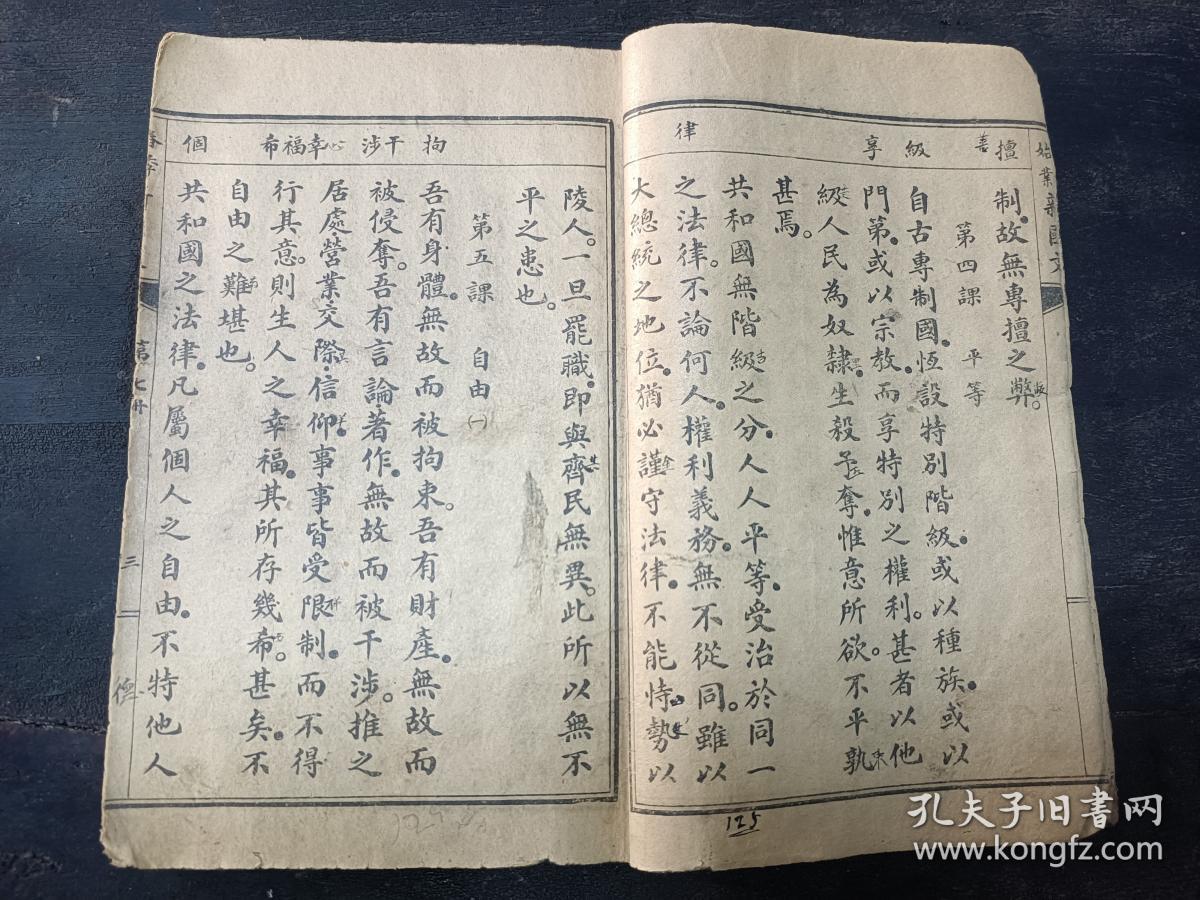 擅
級
享
律
制。故無專擅之弊。
第四課 平等
自古專制國。恆設特別階級。或以種族。或以
門第。或以宗教。而享特別之權利。甚者以他
級人民為奴隸。生殺予奪。惟意所欲。不平孰
甚焉。
共和國無階級之分。人人平等。受治於同一
之法律。不論何人。權利義務。無不從同。雖以
大總統之地位。猶必謹守法律。不能恃勢以
拘
干涉
幸福
希
個
陵人。一旦罷職。即與齊民無異。此所以無不
平之患也。
第五課 自由(一)
吾有身體。無故而被拘束。吾有財產。無故而
被侵奪。吾有言論著作。無故而被干涉。推之
居處·營業·交際·信仰。事事皆受限制。而不得
行其意。則生人之幸福。其所存幾希。甚矣。不
自由之難堪也。
共和國之法律。凡屬個人之自由。不特他人
第七冊
三
125
孔夫子旧书网
www.kongfz.com